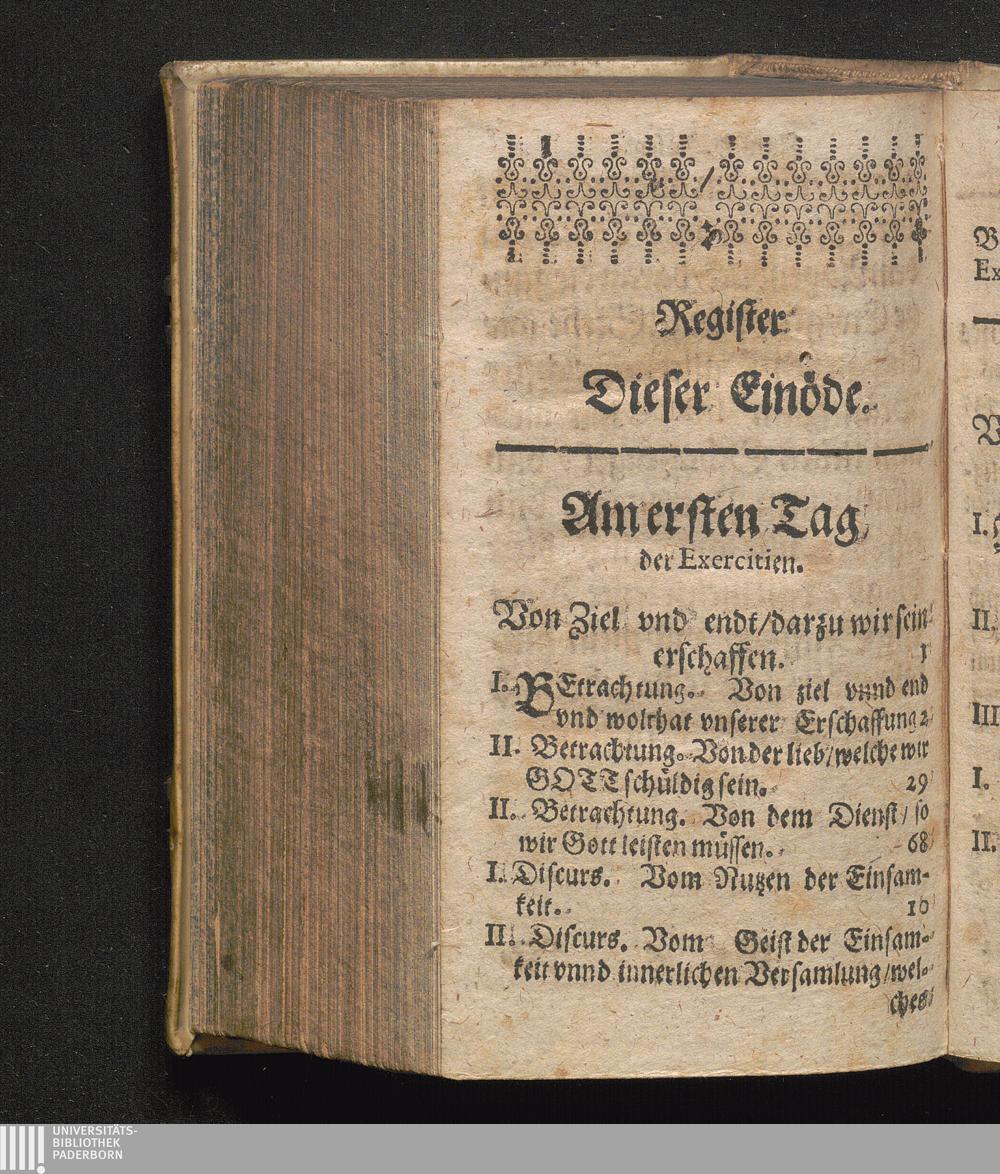 Register
Dieser Einöde.
Am ersten Tag
der Exercitien.
Von Ziel vnd endt/darzu wir sein
erschaffen. 1
I. BEtrachtung. Von ziel vnnd end
vnd wolthat vnserer Erschaffung 2
II. Betrachtung. Von der lieb/welche wir
GOTT schüldig sein. 29
II. Betrachtung. Von dem Dienst/ so
wir Gott leisten müssen. 68
I. Discurs. Vom Nutzen der Einsam-
keit. 10
II. Discurs. Vom Geist der Einsam-
keit vnnd innerlichen Versamlung/wel-
ches
Ex
I.
II.
III
I.
II.
UNIVERSITÄTS-
BIBLIOTHEK
PADERBORN